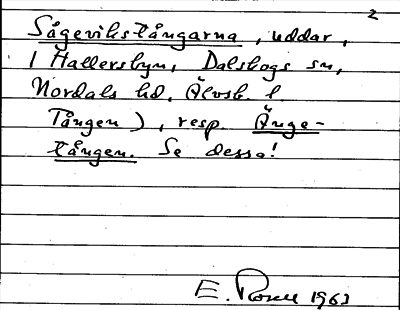 2
Sågevikstångarna, uddar,
i Hallersbyn, Dalskogs sn,
Nordals hd, Älvsb. l.
Tången), resp. Änge-
tången. Se dessa!
E. 1963